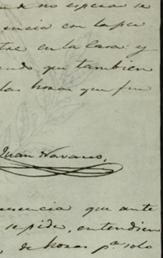 no espera se
encia con la pe
tre en la Casa: y
endo que tambien
las horas que fue
Juan Navarro,
uencia que ante
se pide, entendien
de horas pa. solo